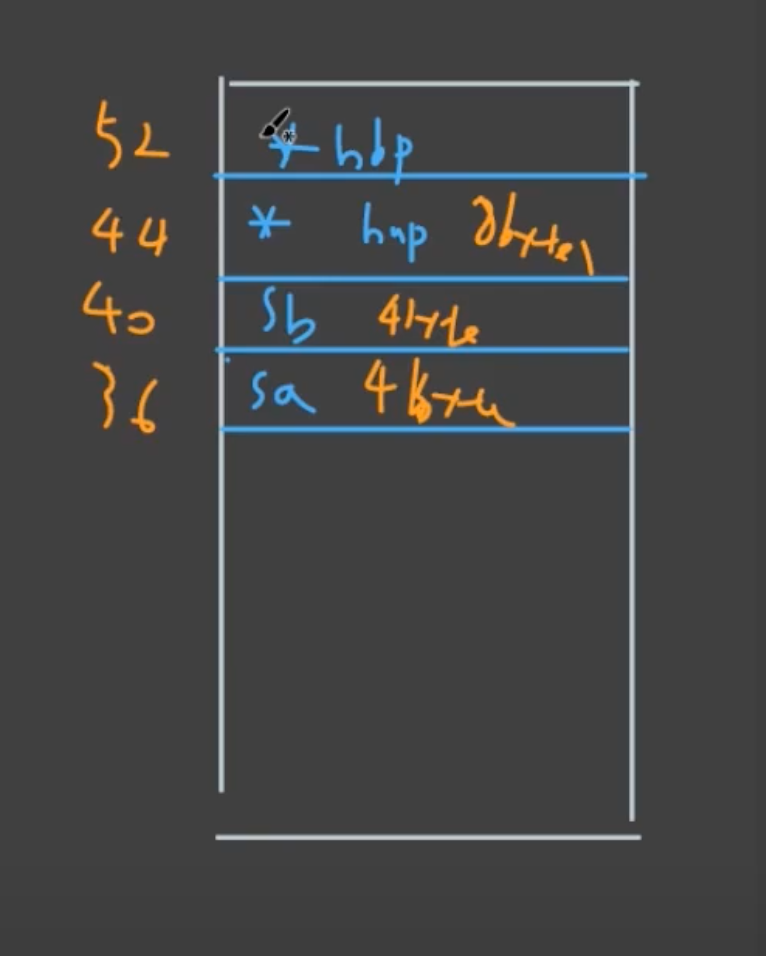 52 * hbp
44 * hnp 8bytes
40 sb 4byte
36 sa 4byte